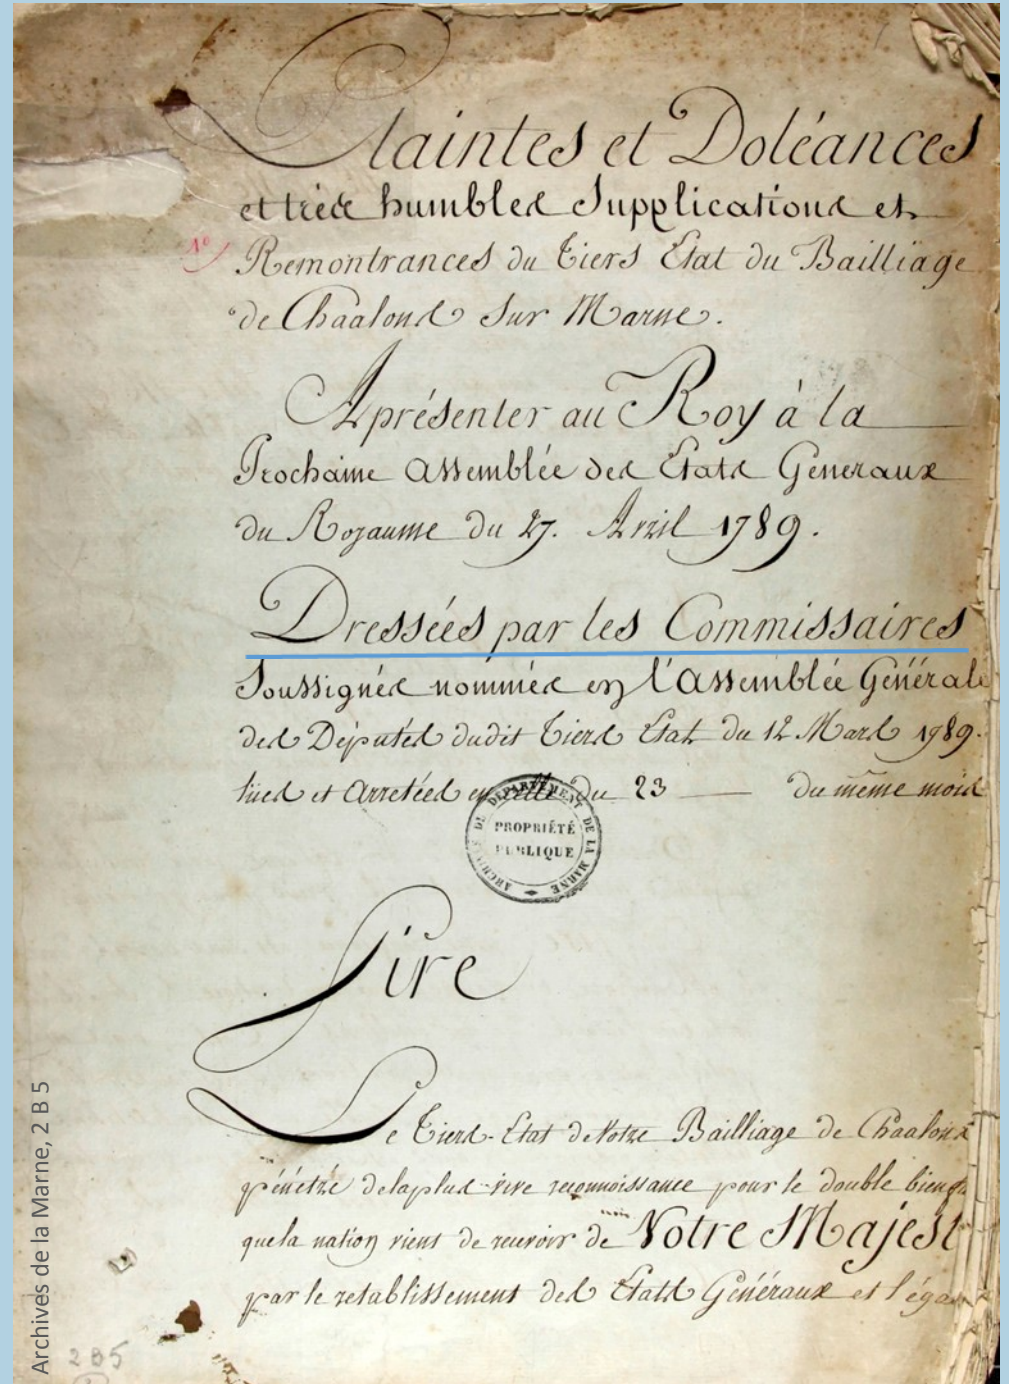 Plaintes et Doléances
et très humbles Supplications et
N°
Remontrances du Tiers Etat du Bailliage
de Chaalons Sur Marne.
A présenter au Roy à la
Prochaine Assemblée des Etats Generaux
du Royaume du 27. Avril 1789.
Dressées par les Commissaires
Soussignés nommés en l'Assemblée Générale
des Députés dudit Tiers Etat du 12 Mars 1789.
lües et Arretées en celle du 23 du même mois
ARCHIVES DU DÉPARTEMENT DE LA MARNE
PROPRIÉTÉ
PUBLIQUE
Sire
Le Tiers-Etat de Votre Bailliage de Chaalons
pénétré de la plus vive reconnoissance pour le double
que la nation vient de recevoir de Votre Majest
par le retablissement des Etats Généraux et l'éga
2 B 5
Archives de la Marne, 2 B 5